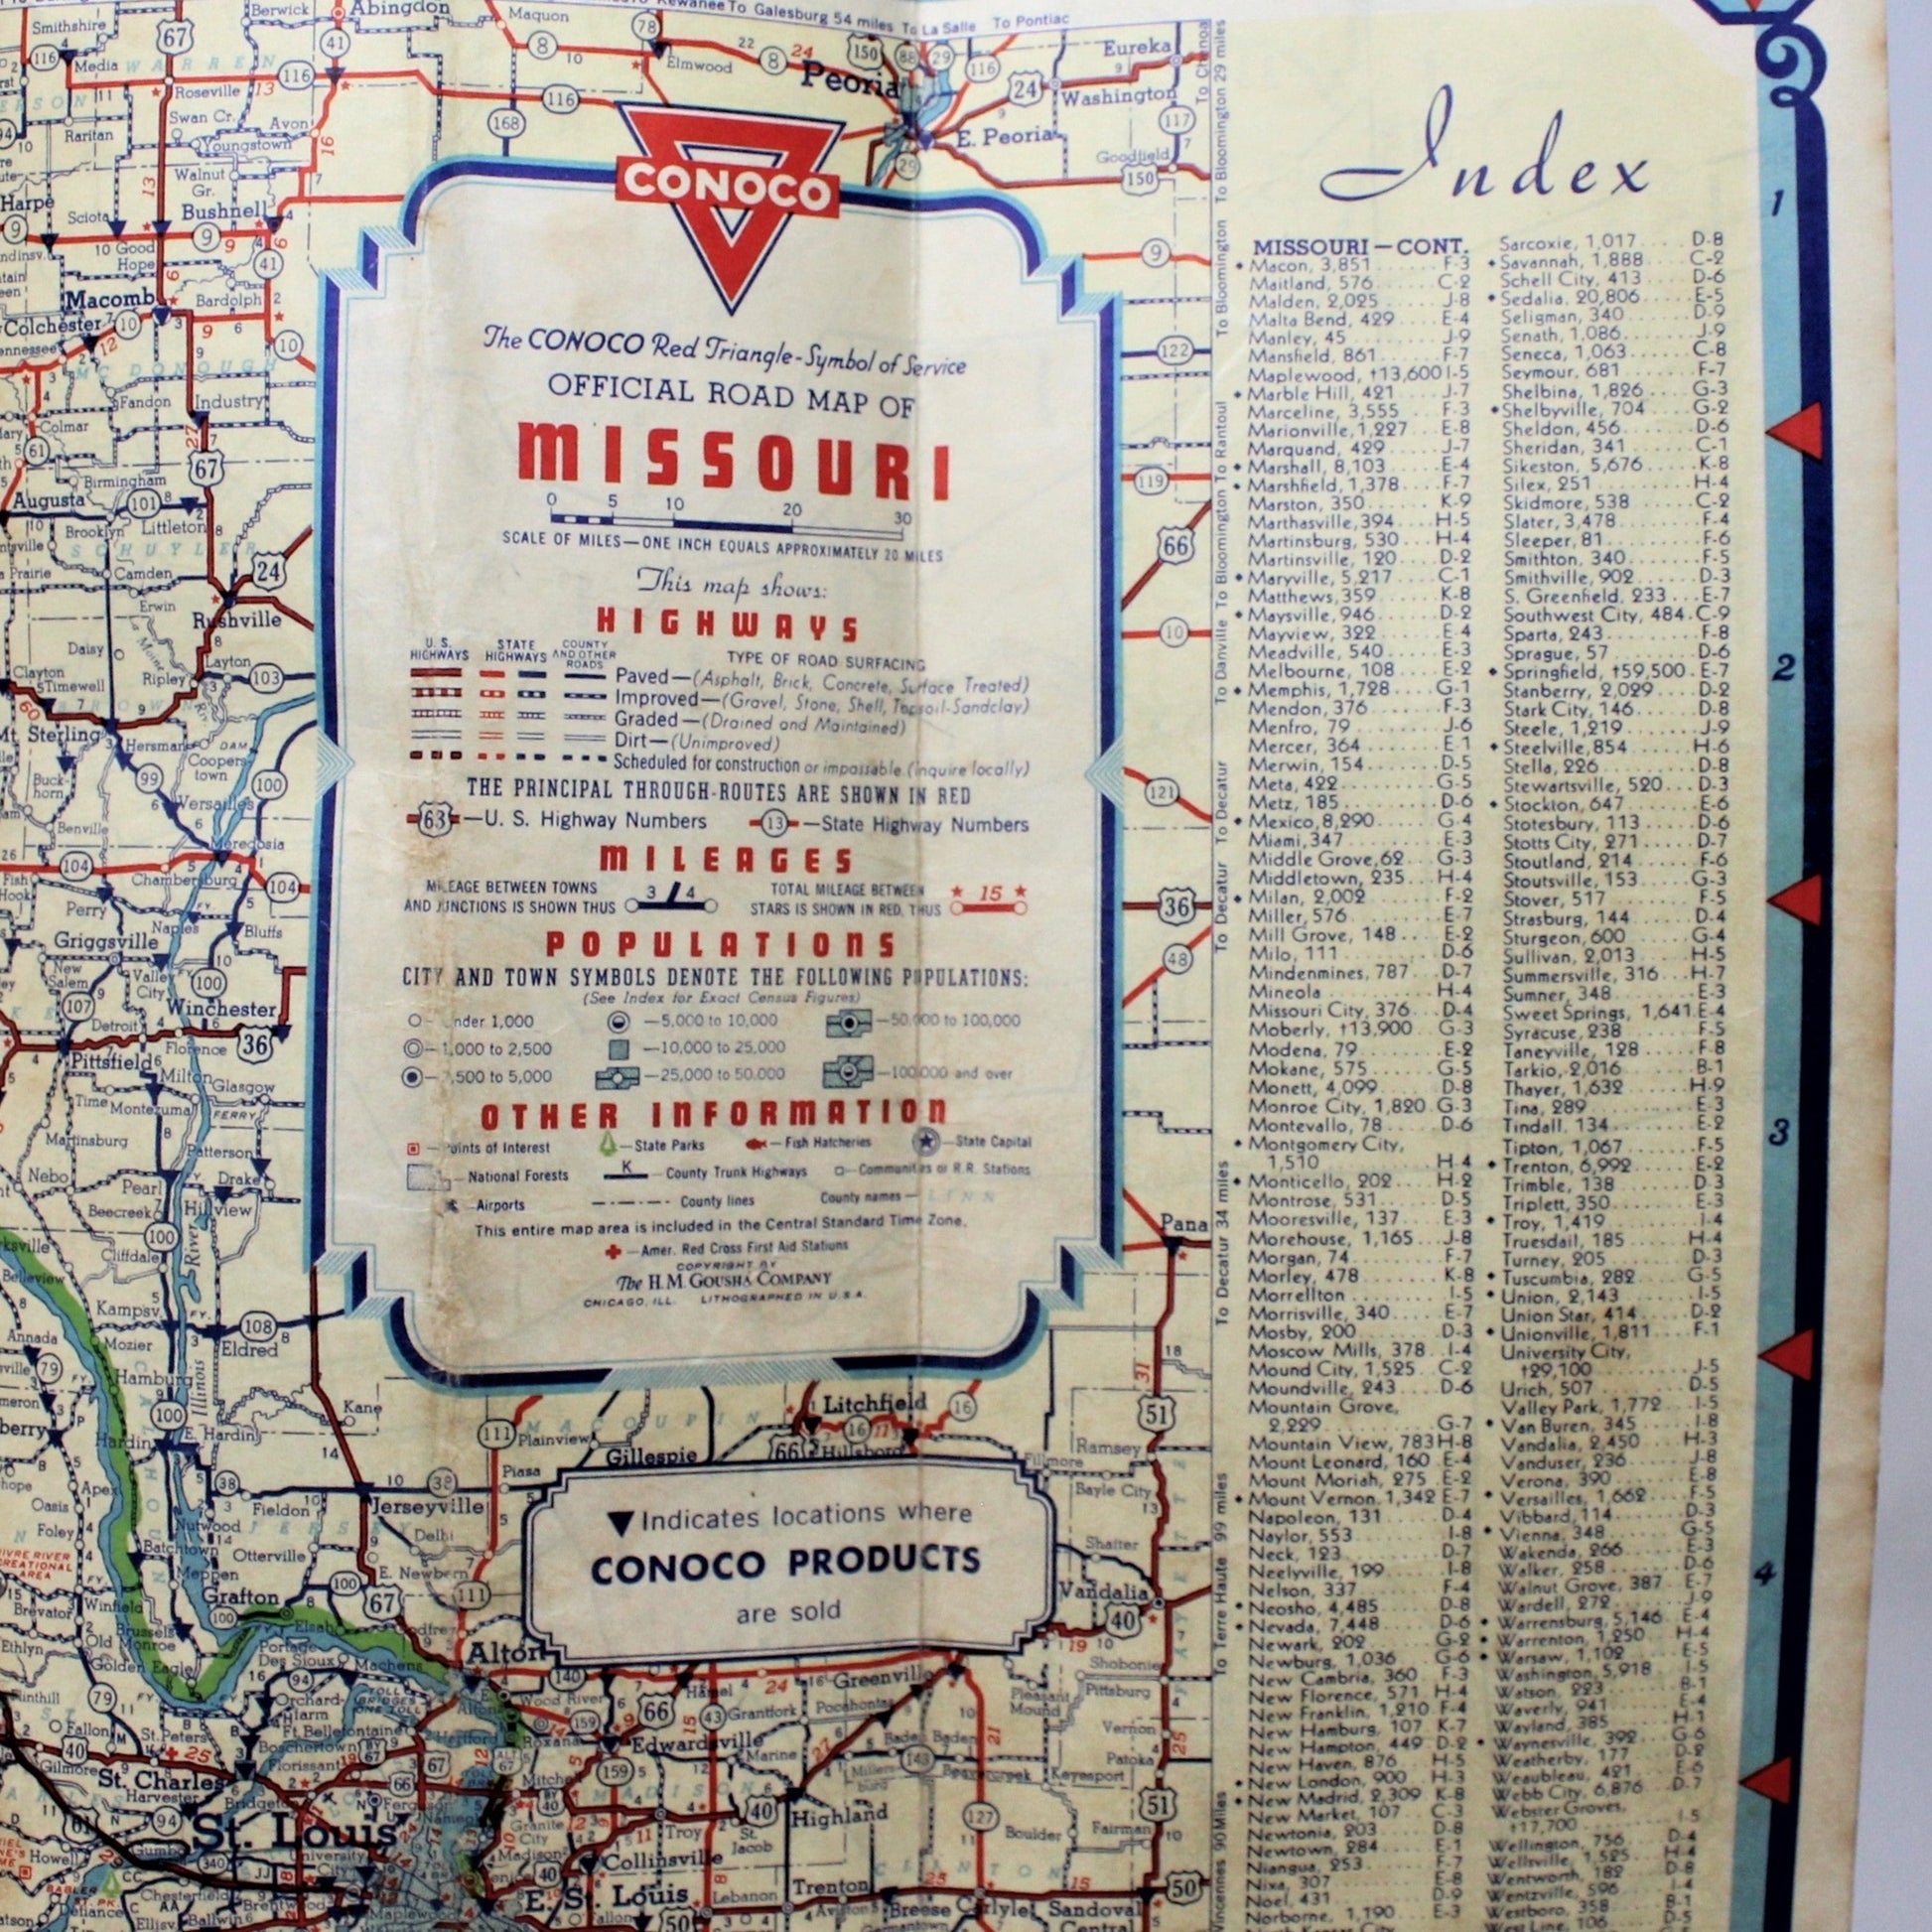 CONOCO
The CONOCO Red Triangle-Symbol of Service
OFFICIAL ROAD MAP OF
MISSOURI
0 5 10 20 30
SCALE OF MILES—ONE INCH EQUALS APPROXIMATELY 20 MILES
This map shows:
HIGHWAYS
U.S. HIGHWAYS
STATE HIGHWAYS
COUNTY AND OTHER ROADS
TYPE OF ROAD SURFACING
Paved—(Asphalt, Brick, Concrete, Surface Treated)
Improved—(Gravel, Stone, Shell, Topsoil-Sandclay)
Graded—(Drained and Maintained)
Dirt—(Unimproved)
Scheduled for construction or impassable (inquire locally)
THE PRINCIPAL THROUGH-ROUTES ARE SHOWN IN RED
63—U. S. Highway Numbers 13—State Highway Numbers
MILEAGES
MILEAGE BETWEEN TOWNS
AND JUNCTIONS IS SHOWN THUS 3 4
TOTAL MILEAGE BETWEEN
STARS IS SHOWN IN RED, THUS 15
POPULATIONS
CITY AND TOWN SYMBOLS DENOTE THE FOLLOWING POPULATIONS:
(See Index for Exact Census Figures)
Under 1,000 —5,000 to 10,000 —50,000 to 100,000
—1,000 to 2,500 —10,000 to 25,000
—2,500 to 5,000 —25,000 to 50,000 —100,000 and over
OTHER INFORMATION
—Points of Interest —State Parks —Fish Hatcheries —State Capital
—National Forests K County Trunk Highways —Communities or R.R. Stations
Airports County lines County names—LINN
This entire map area is included in the Central Standard Time Zone.
—Amer. Red Cross First Aid Stations
COPYRIGHT BY
The H.M. GOUSHA COMPANY
CHICAGO, ILL. LITHOGRAPHED IN U.S.A.
▼Indicates locations where
CONOCO PRODUCTS
are sold
Index
MISSOURI—CONT.
•Macon, 3,851 F-3
Maitland, 576 C-2
Malden, 2,025 J-8
Malta Bend, 429 E-4
Manley, 45 J-9
Mansfield, 861 F-7
Maplewood, †13,600 I-5
•Marble Hill, 421 J-7
Marceline, 3,555 F-3
Marionville, 1,227 E-8
Marquand, 429 J-7
•Marshall, 8,103 E-4
•Marshfield, 1,378 F-7
Marston, 350 K-9
Marthasville, 394 H-5
Martinsburg, 530 H-4
Martinsville, 120 D-2
•Maryville, 5,217 C-1
Matthews, 359 K-8
•Maysville, 946 D-2
Mayview, 322 E-4
Meadville, 540 E-3
Melbourne, 108 E-2
•Memphis, 1,728 G-1
Mendon, 376 F-3
Menfro, 79 J-6
Mercer, 364 E-1
Merwin, 154 D-5
Meta, 422 G-5
Metz, 185 D-6
•Mexico, 8,290 G-4
Miami, 347 E-3
Middle Grove, 62 G-3
Middletown, 235 H-4
•Milan, 2,002 F-2
Miller, 576 E-7
Mill Grove, 148 E-2
Milo, 111 D-6
Mindenmines, 787 D-7
Mineola H-4
Missouri City, 376 D-4
Moberly, †13,900 G-3
Modena, 79 E-2
Mokane, 575 G-5
Monett, 4,099 D-8
Monroe City, 1,820 G-3
Montevallo, 78 D-6
•Montgomery City,
1,510 H-4
•Monticello, 202 H-2
Montrose, 531 D-5
Mooresville, 137 E-3
Morehouse, 1,165 J-8
Morgan, 74 F-7
Morley, 478 K-8
Morrellton I-5
Morrisville, 340 E-7
Mosby, 200 D-3
Moscow Mills, 378 I-4
Mound City, 1,525 C-2
Moundville, 243 D-6
Mountain Grove,
2,229 G-7
Mountain View, 783 H-8
Mount Leonard, 160 E-4
Mount Moriah, 275 E-2
•Mount Vernon, 1,342 E-7
Napoleon, 131 D-4
Naylor, 553 I-8
Neck, 123 D-7
Neelyville, 199 I-8
Nelson, 337 F-4
•Neosho, 4,485 D-8
•Nevada, 7,448 D-6
Newark, 202 G-2
Newburg, 1,036 G-6
New Cambria, 360 F-3
New Florence, 571 H-4
New Franklin, 1,210 F-4
New Hamburg, 107 K-7
New Hampton, 449 D-2
New Haven, 876 H-5
•New London, 900 H-3
•New Madrid, 2,309 K-8
New Market, 107 C-3
Newtonia, 203 D-8
Newtown, 284 E-1
Niangua, 253 F-7
Nixa, 307 E-8
Noel, 431 D-9
Norborne, 1,190 E-3
Sarcoxie, 1,017 D-8
•Savannah, 1,888 C-2
Schell City, 413 D-6
•Sedalia, 20,806 E-5
Seligman, 340 D-9
Senath, 1,086 J-9
Seneca, 1,063 C-8
Seymour, 681 F-7
Shelbina, 1,826 G-3
•Shelbyville, 704 G-2
Sheldon, 456 D-6
Sheridan, 341 C-1
Sikeston, 5,676 K-8
Silex, 251 H-4
Skidmore, 538 C-2
Slater, 3,478 F-4
Sleeper, 81 F-6
Smithton, 340 F-5
Smithville, 902 D-3
S. Greenfield, 233 E-7
Southwest City, 484 C-9
Sparta, 243 F-8
Sprague, 57 D-6
•Springfield, †59,500 E-7
Stanberry, 2,029 D-2
Stark City, 146 D-8
Steele, 1,219 J-9
•Steelville, 854 H-6
Stella, 226 D-8
Stewartsville, 520 D-3
•Stockton, 647 E-6
Stotesbury, 113 D-6
Stotts City, 271 D-7
Stoutland, 214 F-6
Stoutsville, 153 G-3
Stover, 517 F-5
Strasburg, 144 D-4
Sturgeon, 600 G-4
Sullivan, 2,013 H-5
Summersville, 316 H-7
Sumner, 348 E-3
Sweet Springs, 1,641 E-4
Syracuse, 238 F-5
Taneyville, 128 F-8
Tarkio, 2,016 B-1
Thayer, 1,632 H-9
Tina, 289 E-3
Tindall, 134 E-2
Tipton, 1,067 F-5
•Trenton, 6,992 E-2
Trimble, 138 D-3
Triplett, 350 E-3
•Troy, 1,419 I-4
Truesdail, 185 H-4
Turney, 205 D-3
•Tuscumbia, 282 G-5
•Union, 2,143 I-5
Union Star, 414 D-2
•Unionville, 1,811 F-1
University City,
†29,100 J-5
Urich, 507 D-5
Valley Park, 1,772 I-5
•Van Buren, 345 I-8
Vandalia, 2,450 H-3
Vanduser, 236 J-8
Verona, 390 E-8
•Versailles, 1,662 F-5
Vibbard, 114 D-3
•Vienna, 348 G-5
Wakenda, 266 E-3
Walker, 258 D-6
Walnut Grove, 387 E-7
Wardell, 272 J-9
•Warrensburg, 5,146 E-4
•Warrenton, 1,250 H-4
•Warsaw, 1,102 E-5
Washington, 5,918 I-5
Watson, 223 B-1
Waverly, 941 E-4
Wayland, 385 H-1
•Waynesville, 392 G-6
Weatherby, 177 D-2
Weaubleau, 421 E-6
Webb City, 6,876 D-7
Webster Groves,
†17,700 I-5
Wellington, 756 D-4
Wellsville, 1,525 H-4
Wentworth, 182 D-8
Wentzville, 596 I-4
Westboro, 358 B-1
West Line, 106 D-5
1
2
3
4
To Galesburg 54 miles To La Salle To Pontiac
Smithshire
Berwick
Abingdon
Maquon
Elmwood
Peoria
Eureka
Washington
E. Peoria
Goodfield
Media
Roseville
Raritan
Swan Cr.
Avon
Youngstown
Walnut Gr.
Sciota
Bushnell
Good Hope
Macomb
Bardolph
Colchester
Fandon
Industry
Colmar
Birmingham
Augusta
Brooklyn
Littleton
SCHUYLER
Camden
Erwin
Rushville
Daisy
Layton
Ripley
Clayton
Timewell
Mt. Sterling
Hersman
Cooperstown
Buckhorn
Versailles
Benville
Meredosia
Chambersburg
Perry
Naples
Bluffs
Griggsville
New Salem
Valley City
Winchester
Detroit
Florence
Pittsfield
Milton
Glasgow
Time
Montezuma
FERRY
Martinsburg
Patterson
Nebo
Pearl
Drake
Beecreek
Hillview
Cliffdale
Belleview
Kampsv.
Mozier
Eldred
Annada
Hamburg
Kane
Hardin
E. Hardin
Illinois River
MACOUPIN
Plainview
Gillespie
Litchfield
Hillsboro
Fillmore
Ramsey
Bayle City
Pana
Piasa
Jerseyville
Fieldon
Delhi
Nutwood
Otterville
Batchtown
Meppen
E. Newbern
Grafton
Elsah
Brussels
Golden Eagle
Winfield
Foley
Apex
Oasis
Brevator
Old Monroe
Ethlyn
Portage Des Sioux
Machens
Alton
Wood River
Hamel
Grantfork
Pocahontas
Greenville
Pleasant Mound
Shafter
Vandalia
Shobonier
Pittsburg
Vernon
Patoka
Keyesport
Boulder
Fairman
Edwardsville
Marine
Highland
St. Jacob
Troy
Collinsville
Lebanon
Trenton
Breese
Carlyle
Sandoval
St. Peters
O'Fallon
Orchard Farm
Ft. Bellefontaine
Florissant
St. Charles
Harvester
St. Louis
University City
Granite City
Madison
E. St. Louis
Maplewood
Chesterfield
Ballwin
Gumbo
Howell
Defiance
CLINTON
MADISON
To Bloomington 29 miles
To Bloomington
To Rantoul
To Danville
To Decatur
To Decatur 34 miles
To Terre Haute 99 miles
Vincennes 90 Miles